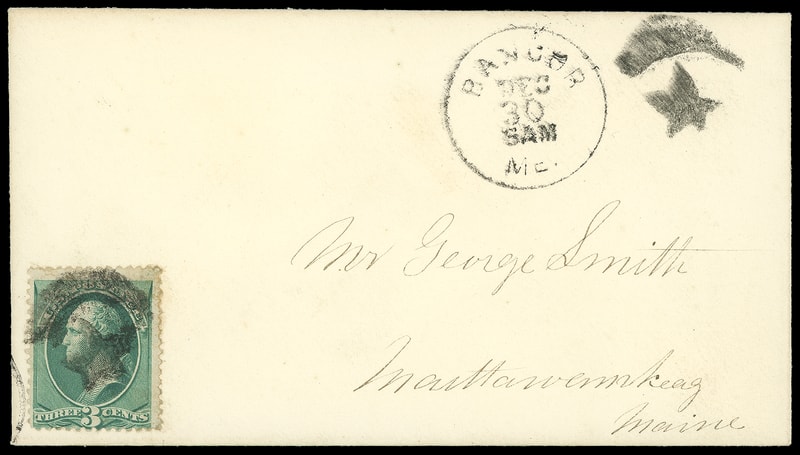 BANGOR
DEC
30
8AM
ME.
Mr George Smith
Mattawamkeag
Maine
THREE 3 CENTS